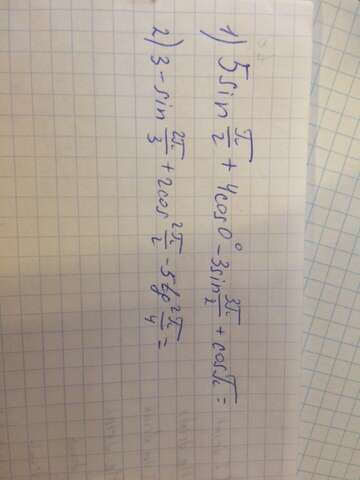 1) 5sin π/2 + 4cos0° - 3sin 3π/2 + cosπ =
2) 3 - sin 2π/3 + 2cos² π/2 - 5tg² π/4 =